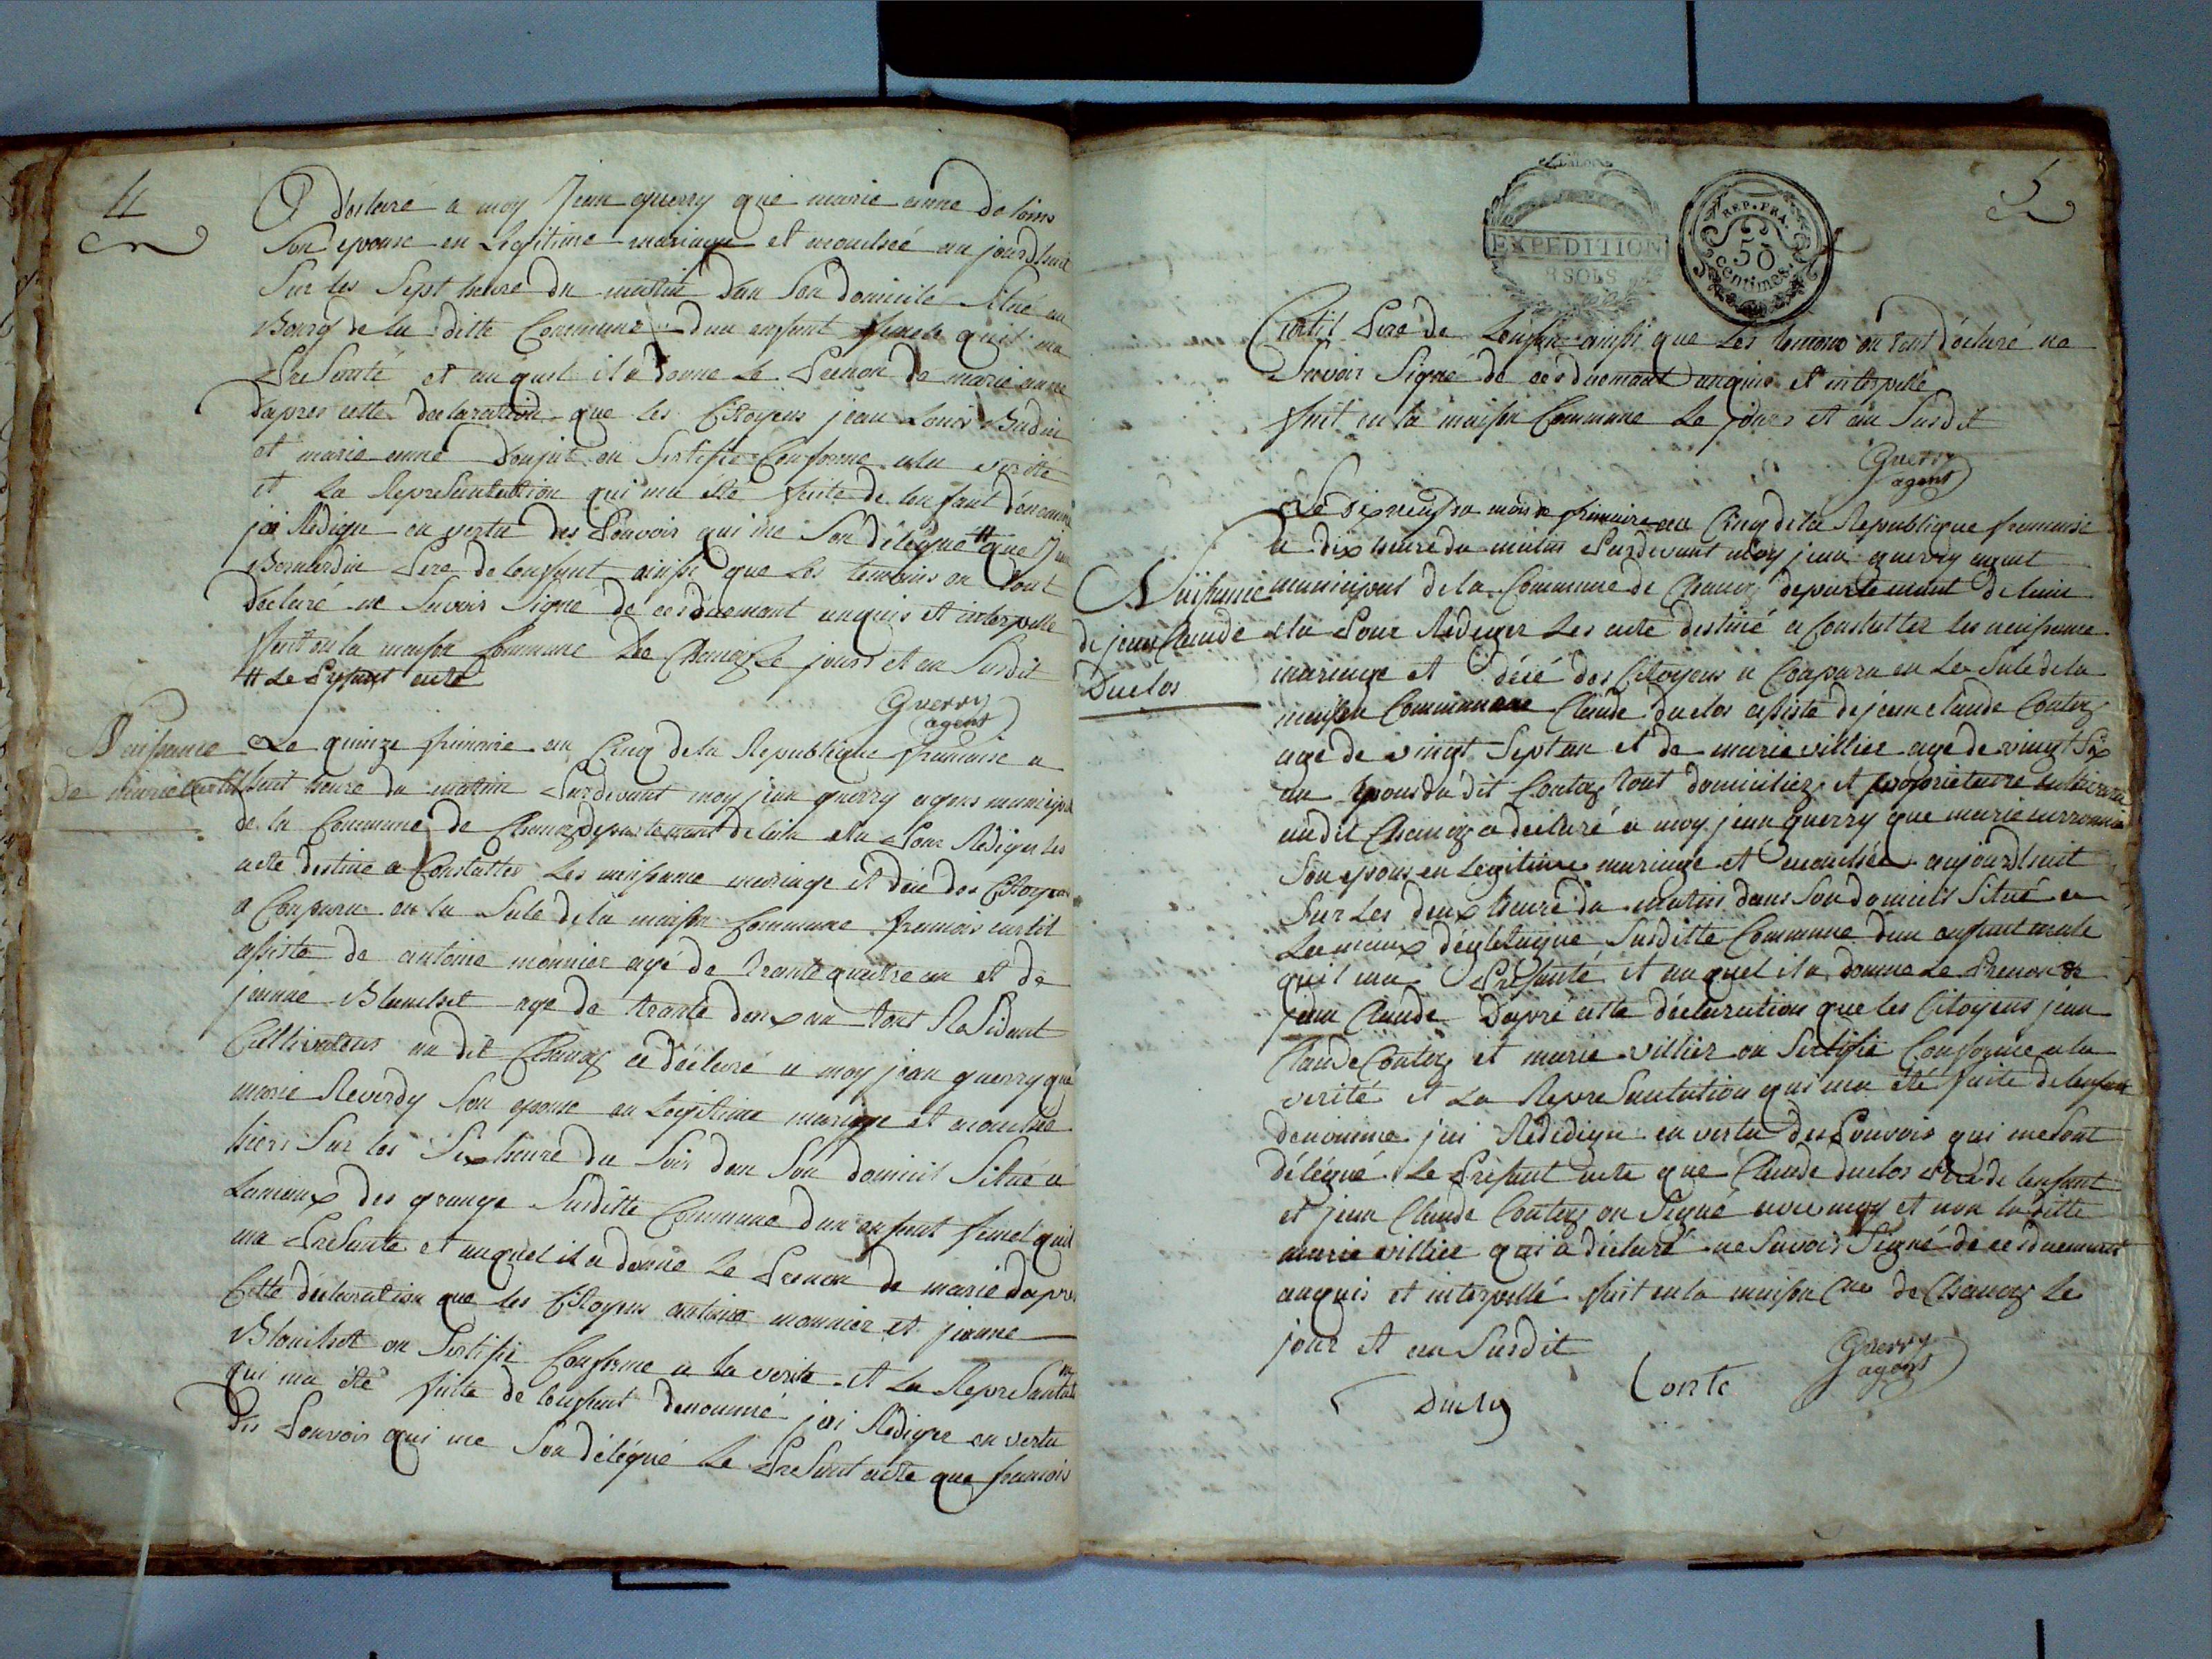 4
a déclaré a moy Jean querry que marie anne
Son epouse en Legitime mariage et acouchéé au jourdhuit
Sur les Sept heure du matin dan Son domicile Situé au
Bourg de la ditte Commune dun enfant femele quil ma
PreSenté et auquel il a donné Le Prenon de marie anne
dapres cette declaration que les Citoyens jean Louis
et marie anne on Sertifié Conforme ala verité
et La RepreSentation qui ma été faite de lenfant dénommé
jai Redigé en vertu des Pouvoir qui me Son délégué # que
Bernardin Pere de lenfant ainssi que Les temoins on tout
declaré ne Savoir Signé de ce duemant enquis et interpellé
fait en la maison Commune De Chanoz Le jours et an Susdit
# Le Present acte
Querry
agent
Naissance
de marie Curtil
Le quinze frimaire an Cinq de la Republique francaise a
huit heure du matin Pardevant moy jean querry agens municipal
de la Commune de Chanoz departemant de lain elu Pour Rediger les
acte destiné a Constatter Les naissance mariage et décé des Citoyens
a Conparu en la Sale de la maison Commune francois curtil
assisté de antoine monnier agé de trante quattre an et de
jeanne Blanchet age de trante deux an tout ReSidant
Cultivateurs au dit Chanoz a déclaré a moy jean querry que
marie Reverdy Son epouse en Legitime mariage et acouchée
hiers Sur les Six heure du Soir dan Son domicil Situé a
Lameaux des grange Susditte Commune dun enfant femel quil
ma PreSenté et auquel il a donné Le Prenon de marie dapres
Cette declaration que les Citoyens antoine monnier et jeanne
Blanchet on Sertifié Conforme a la verité et La RepreSantaton
qui ma été faitte de lenfant denommé jai Redigée en vertu
des Pouvoir qui me Son délégué Le PreSent acte que francois
5
EXPEDITION
8 SOLS
REP. FRA.
50
centimes.
Curtil Pere de Lenfan ainssi que Les temoins on tout déclaré ne
Savoir Signé de ce duemant enquis et interpellé
fait en la maison Commune Le jours et an Susdit
Querry
agent
Naissance
de jean Claude
Duclos
Le dix neuf du mois de frimaire an Cinq de la Republique francaise
a dix heure du matin Pardevant moy jean querry agent
municipal de la Commune de Chanoz departemant de lain
elu Pour Rediger Les acte destiné a Constatter les naissance
mariage et décé des Citoyens a Conparu en La Sale de la
maison Commune Claude duclos assisté de jean claude Contez
agé de vingt Sept an et de marie villier agé de vingt Six
an epous du dit Contez tout domiciliez et propriétaire
audit Chanoz a declaré a moy jean querry que marie
Son epous en Legitime mariage et acouchée aujourdhuit
Sur Les deux heure du matin dans Son domicils Situé a
Lameaux Susditte Commune dun enfant male
quil ma PreSenté et auquel il a donné Le Prenon de
jean Claude Dapré cette déclaration que les Citoyens jean
Claude Contez et marie villier on Sertifié Conforme a la
verité et La RepreSentation qui ma été faite de lenfant
denommé jai Redidigé en vertu des Pouvoir qui me Sont
délégué Le Present acte que Claude duclos Pere de lenfant
et jean Claude Contez on Signé avec moy et non la ditte
marie villier qui a déclaré ne Savoir Signé de ce duement
enquis et interpellé fait en la maison Cne de Chanoz Le
jour et an Susdit
Duclos
Conte
Querry
agent